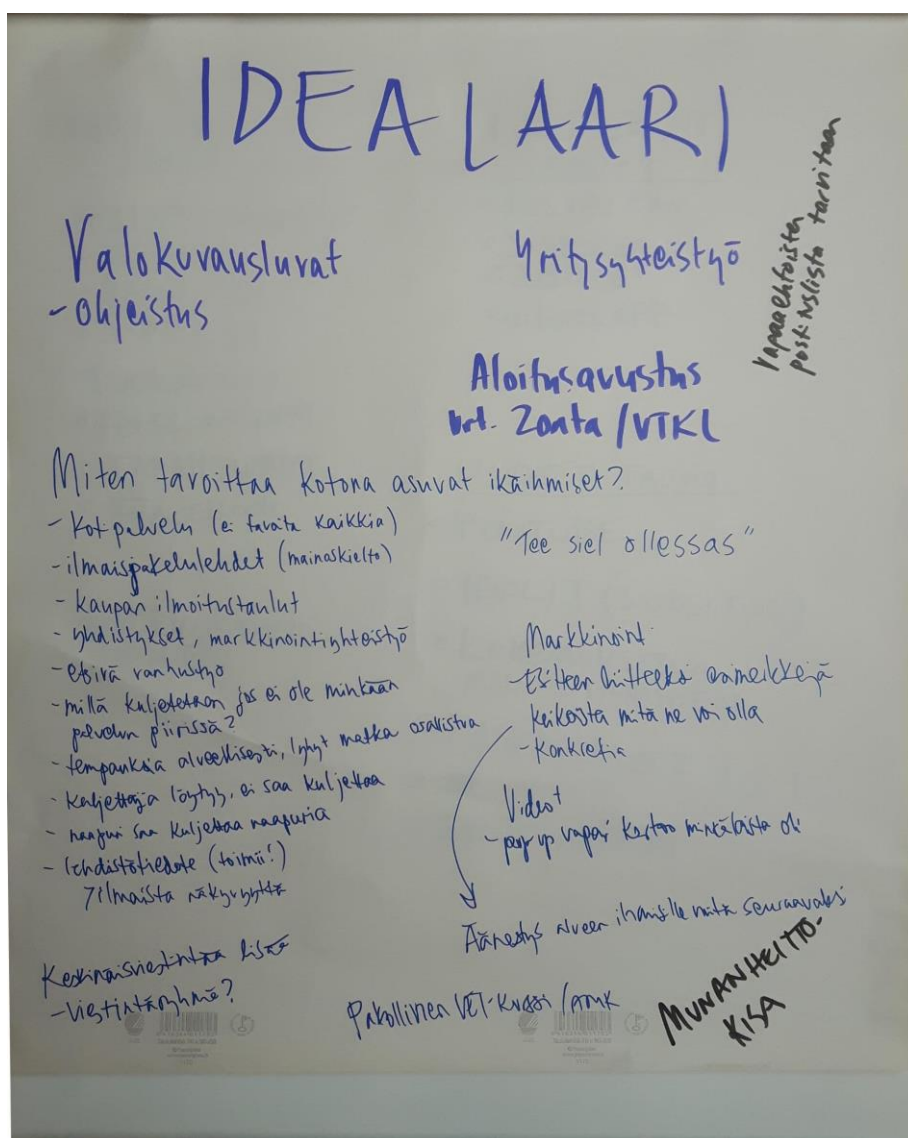 IDEALAARI
Valokuvausluvat
- ohjeistus
Yritysyhteistyö
Vapaaehtoisten
postituslista tarvitaan
Aloitusavustus
vrt. Zonta / VTKL
Miten tavoittaa kotona asuvat ikäihmiset?
- Kotipalvelu (ei tavoita kaikkia)
- ilmaisjakelulehdet (mainoskielto)
- kaupan ilmoitustaulut
- yhdistykset, markkinointiyhteistyö
- etsivä vanhustyö
- millä kuljetetaan jos ei ole minkään
palvelun piirissä?
- tempauksia alueellisesti, lyhyt matka osallistua
- Kuljettaja löytyy, ei saa kuljettaa
- naapuri saa kuljettaa naapuria
- lehdistötiedote (toimii!)
ilmaista näkyvyyttä
Keskinäisviestintää lisää
- viestintäryhmä?
"Tee siel ollessas"
Markkinointi
- Esitteen liitteeksi esimerkkejä
keikoista mitä ne voi olla
- Konkretia
Videot
- pop up vapari kertoo minkälaista oli
Äänestys alueen ihmisille mitä seuraavaksi
Pakollinen VET-kurssi / AMK
MUNANHEITTO-
KISA